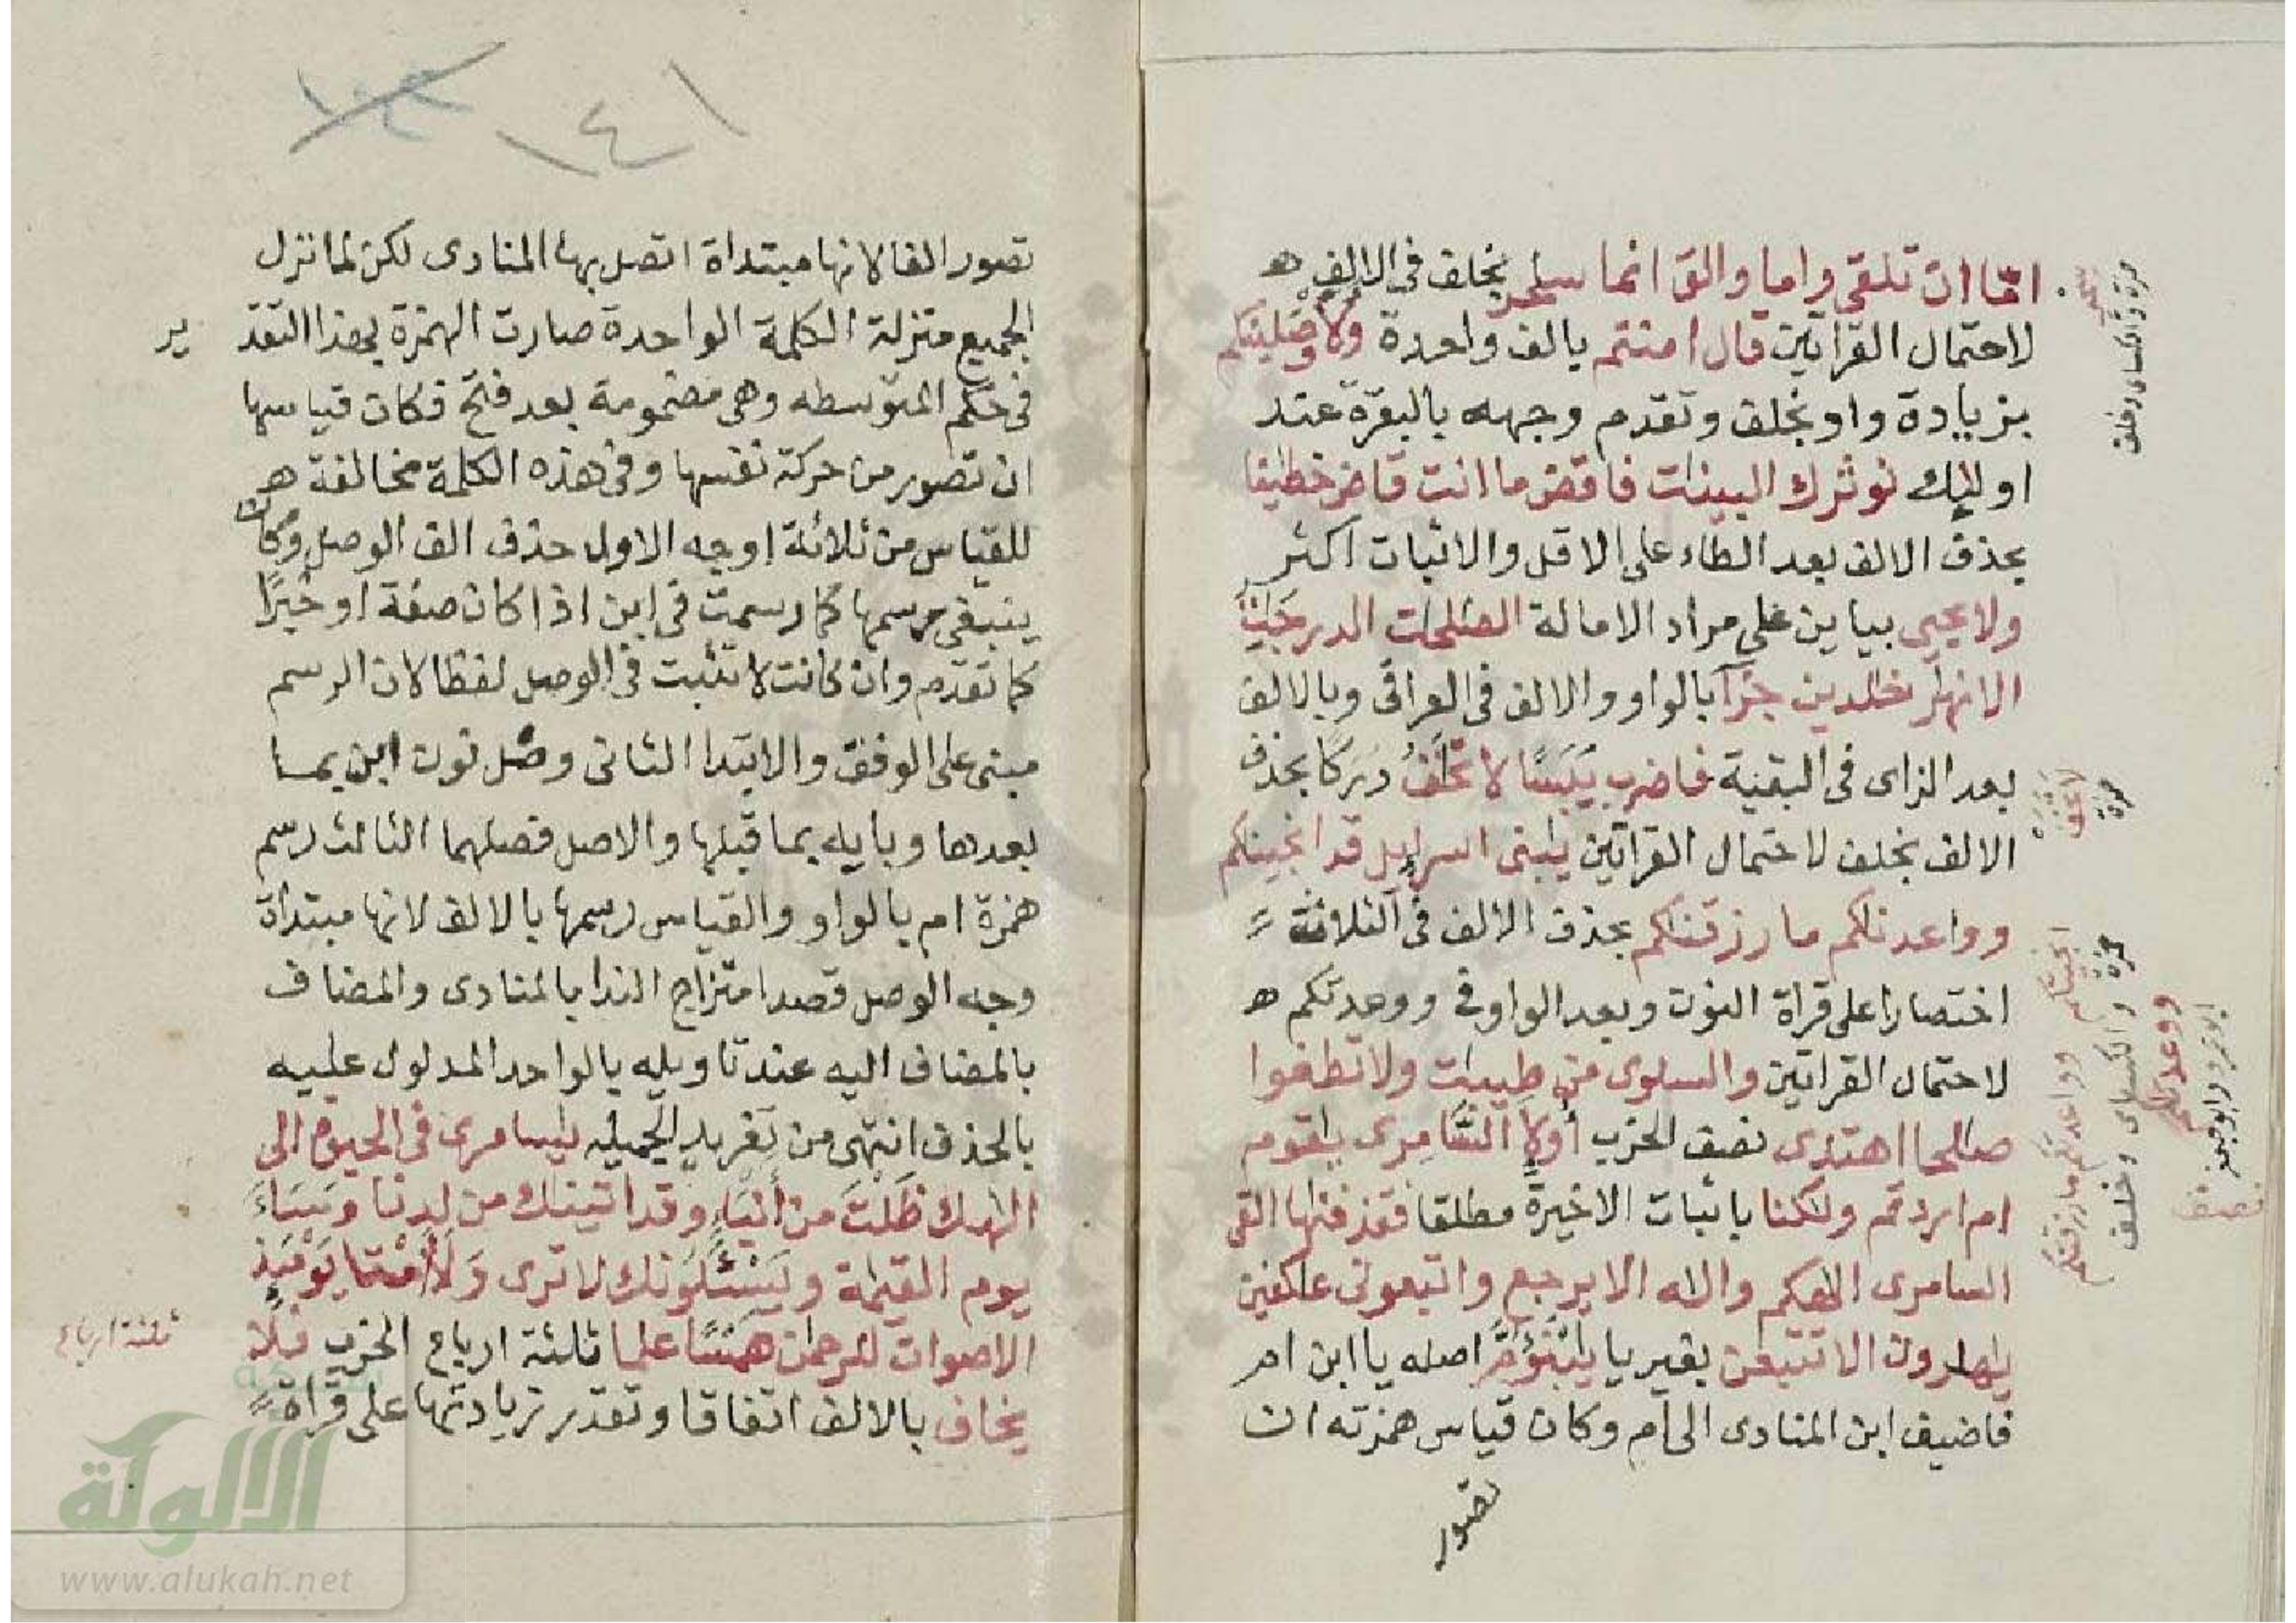 اما ان تلقى واما والق انما سحر بخلف فى الالف
لاحتمال القراتين قال امنتم بالف واحدة ولاوصلبنكم
بزيادة واو بخلف وتقدم وجهه بالبقرة عند
اوليك نوثرك البينات فاقض ما انت قاض خطينا
بحذف الالف بعد الطاء على الاقل والاثبات اكثر
ولا يحيى بيايين على مراد الامالة الصلحت الدرجت
الانهر خلدين جزآ بالواو والالف فى العراقى وبالالف
بعد الزاى فى البقية فاضرب يبسا لا تخف دركا بحذف
الالف بخلف لاحتمال القراتين يبنى اسرايل قد انجينكم
وواعدنكم ما رزقنكم بحذف الالف فى الثلاثة
اختصارا على قراة النون وبعد الواو فى ووعدتكم
لاحتمال القراتين والسلوى من طيبت ولا تطغوا
صالحا اهتدى نصف الحزب أولا السامرى يقوم
ام اردتم ولكنا باثبات الاخيرة مطلقا فقذفنها القى
السامرى الهكم واله الا يرجع واتبعونى عكفين
يهرون الا تتبعن بغير يا يبنؤم اصله يا ابن ام
فاضيف ابن المنادى الى ام وكان قياس همزته ان
تصور
حمزة والكسائى وخلف
لا تخف
حمزة
انجيتكم وواعدتكم ما رزقتكم
حمزة والكسائى وخلف
ووعدنكم
ابو عمرو وابو جعفر
نصف
١٤١
تصور الفا لانها مبتداة اتصل بها المنادى لكن لما نزل
الجميع منزلة الكلمة الواحدة صارت الهمزة بهذا التقد
ير
فى حكم المتوسطه وهى مضمومة بعد فتح فكان قياسها
ان تصور من حركة نفسها وفى هذه الكلمة مخالفة
للقياس من ثلاثة اوجه الاول حذف الف الوصل وكان
ينبغى رسمها كما رسمت فى ابن اذا كان صفة او خبرًا
كما تقدم وان كانت لا تثبت فى الوصل لفظا لان الرسم
مبنى على الوقف والابتدا الثانى وصل نون ابن بما
بعدها وبايه بما قبلها والاصل فصلهما الثالث رسم
همزة ام بالواو والقياس رسمها بالالف لانها مبتداة
وجه الوصل قصد امتزاج الندا بالمنادى والمضاف
بالمضاف اليه عند تاويله بالواحد المدلول عليه
بالحذف انتهى من تغريد الجميله يسامرى فى الحيوة الى
الهك ظلت من أنباء وقد اتينك من لدنا وساء
يوم القيمة ويسئلونك لا ترى ولا أمتا يومئذ
الاصوات للرحمن همسًا علما ثلثة ارباع الحزب فلا
يخاف بالالف اتفاقا وتقدر زيادتها على قراة
ثلثة ارباع
الالوكة
www.alukah.net